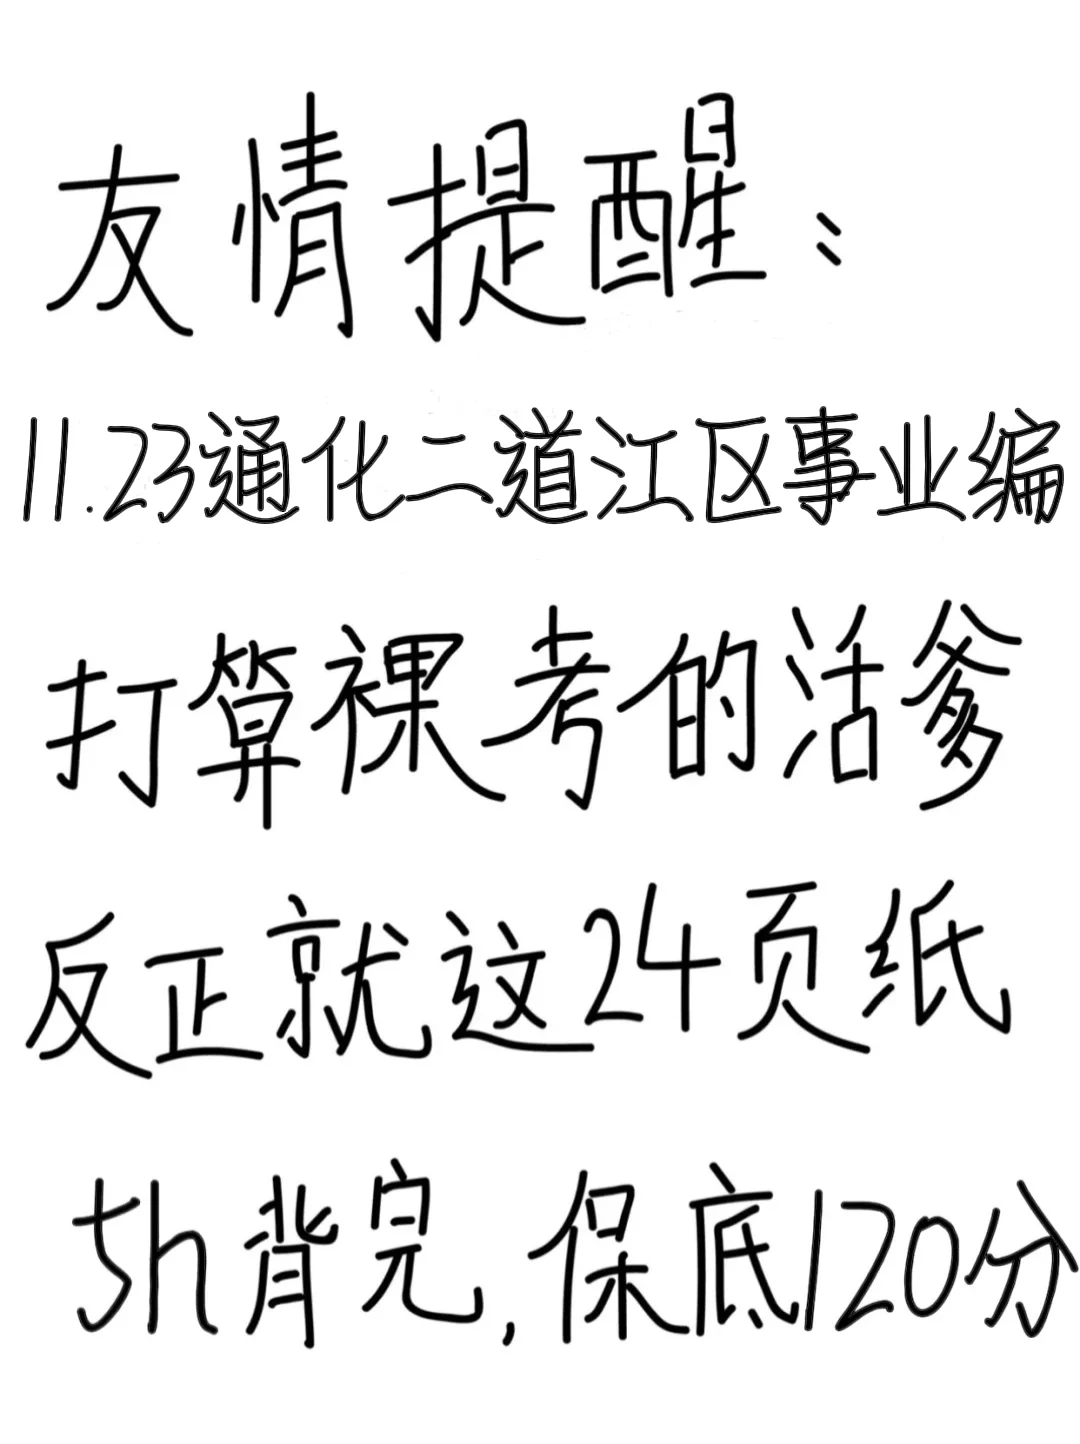 友情提醒：
11.23通化二道江区事业编
打算裸考的活爹
反正就这24页纸
5h背完,保底120分